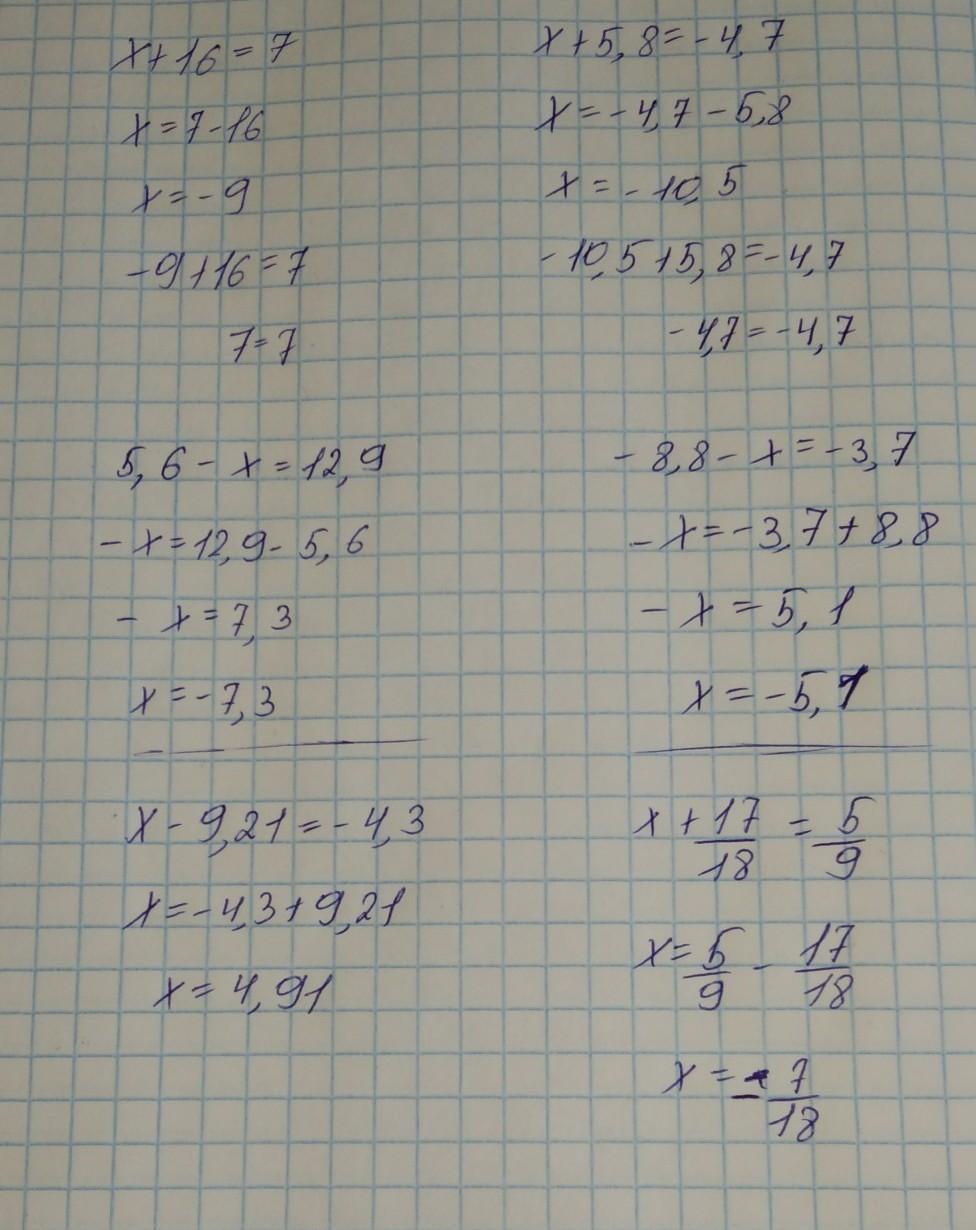 x+16=7
x=7-16
x=-9
-9+16=7
7=7
x+5,8=-4,7
x=-4,7-5,8
x=-10,5
-10,5+5,8=-4,7
-4,7=-4,7
5,6-x=12,9
-x=12,9-5,6
-x=7,3
x=-7,3
-8,8-x=-3,7
-x=-3,7+8,8
-x=5,1
x=-5,1
x-9,21=-4,3
x=-4,3+9,21
x=4,91
x+17/18=5/9
x=5/9-17/18
x=-7/18